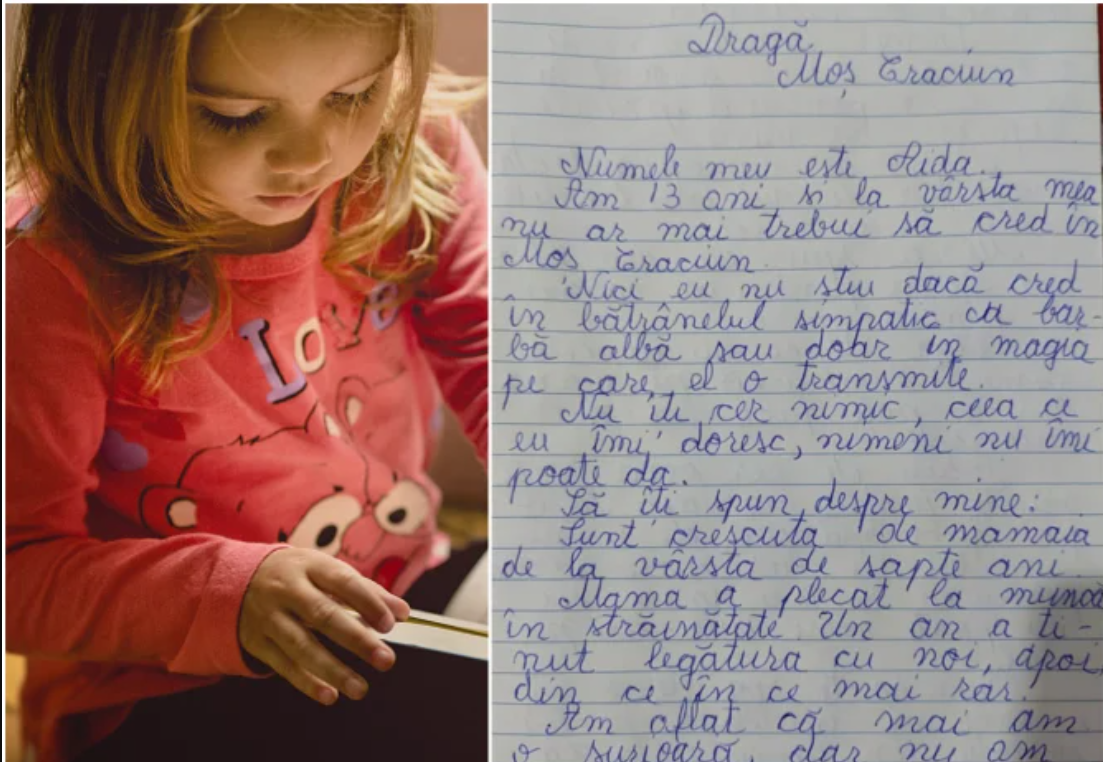 Love
Dragă
Moș Craciun
Numele meu este Aida.
Am 13 ani și la vârsta mea
nu ar mai trebui să cred în
Moș Craciun.
Nici eu nu știu dacă cred
în bătrânelul simpatic cu bar-
bă albă sau doar in magia
pe care el o transmite.
Nu îti cer nimic, ceea ce
eu îmi doresc, nimeni nu îmi
poate da.
Să îti spun despre mine:
Sunt crescuta de mamaia
de la vârsta de sapte ani.
Mama a plecat la muncă
în străinătate Un an a ti-
nut legătura cu noi, apoi
din ce în ce mai rar.
Am aflat că mai am
o surioară, dar nu am